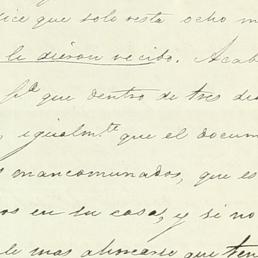 dice que solo resta ocho m
le dieron recibo. Acab
pa que dentro de tres dia
, igualmte que el docum
s mancomunados, que es
os en su casa, y si no
le mas
que ten